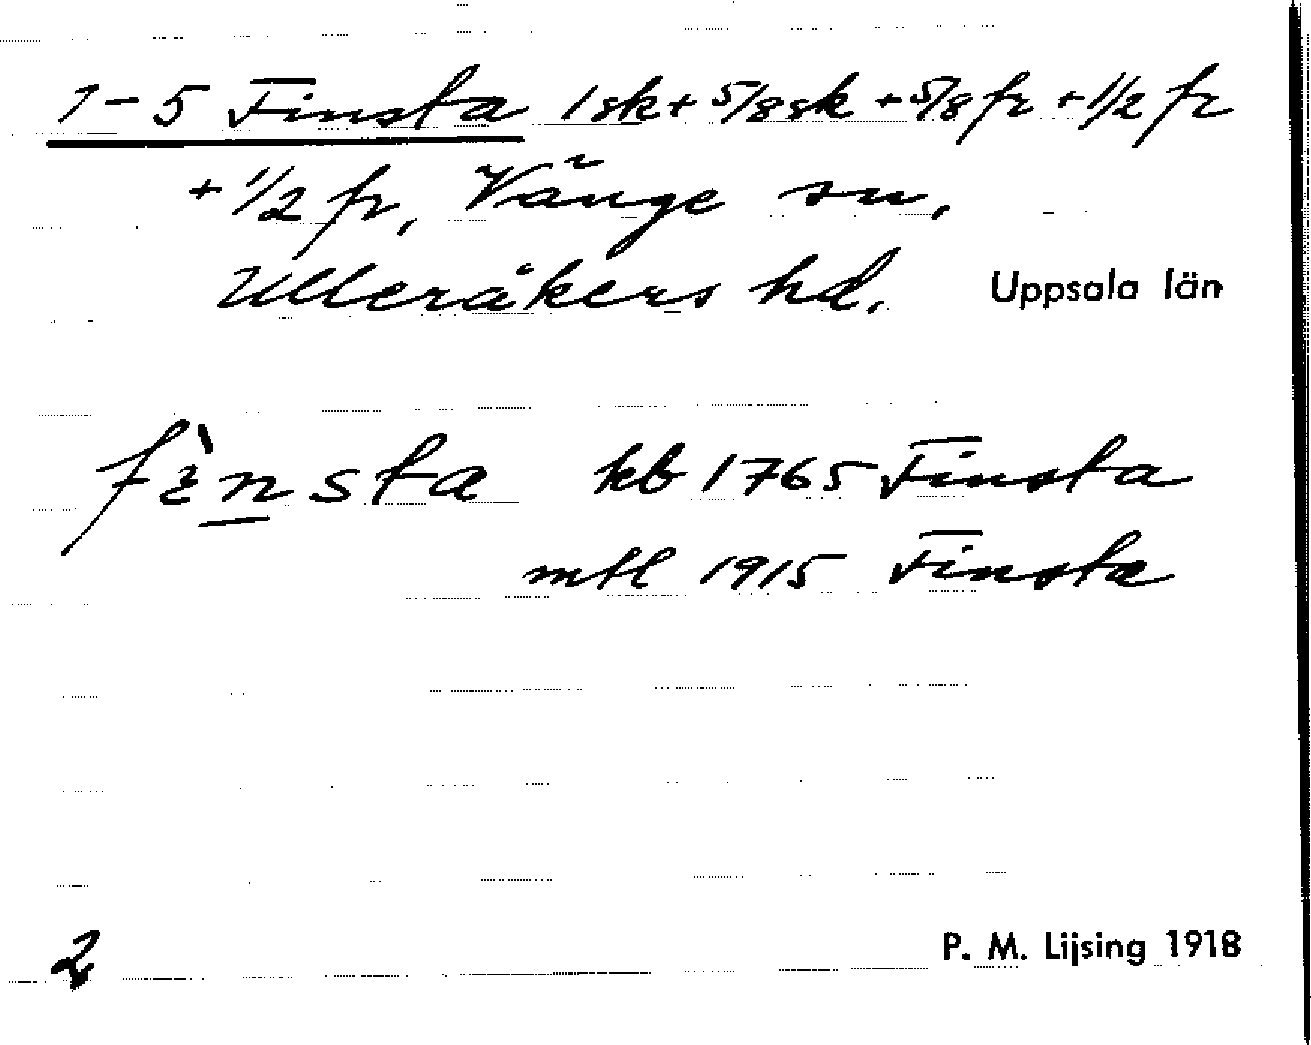 1-5 Finsta 1 sk + 5/8 sk + 5/8 fr + 1/2 fr
+ 1/2 fr, Vänge sn,
Ulleråkers hd. Uppsala län
fì̀n̲sta kb 1765 Finsta
mtl 1915 Finsta
2 P. M. Lijsing 1918